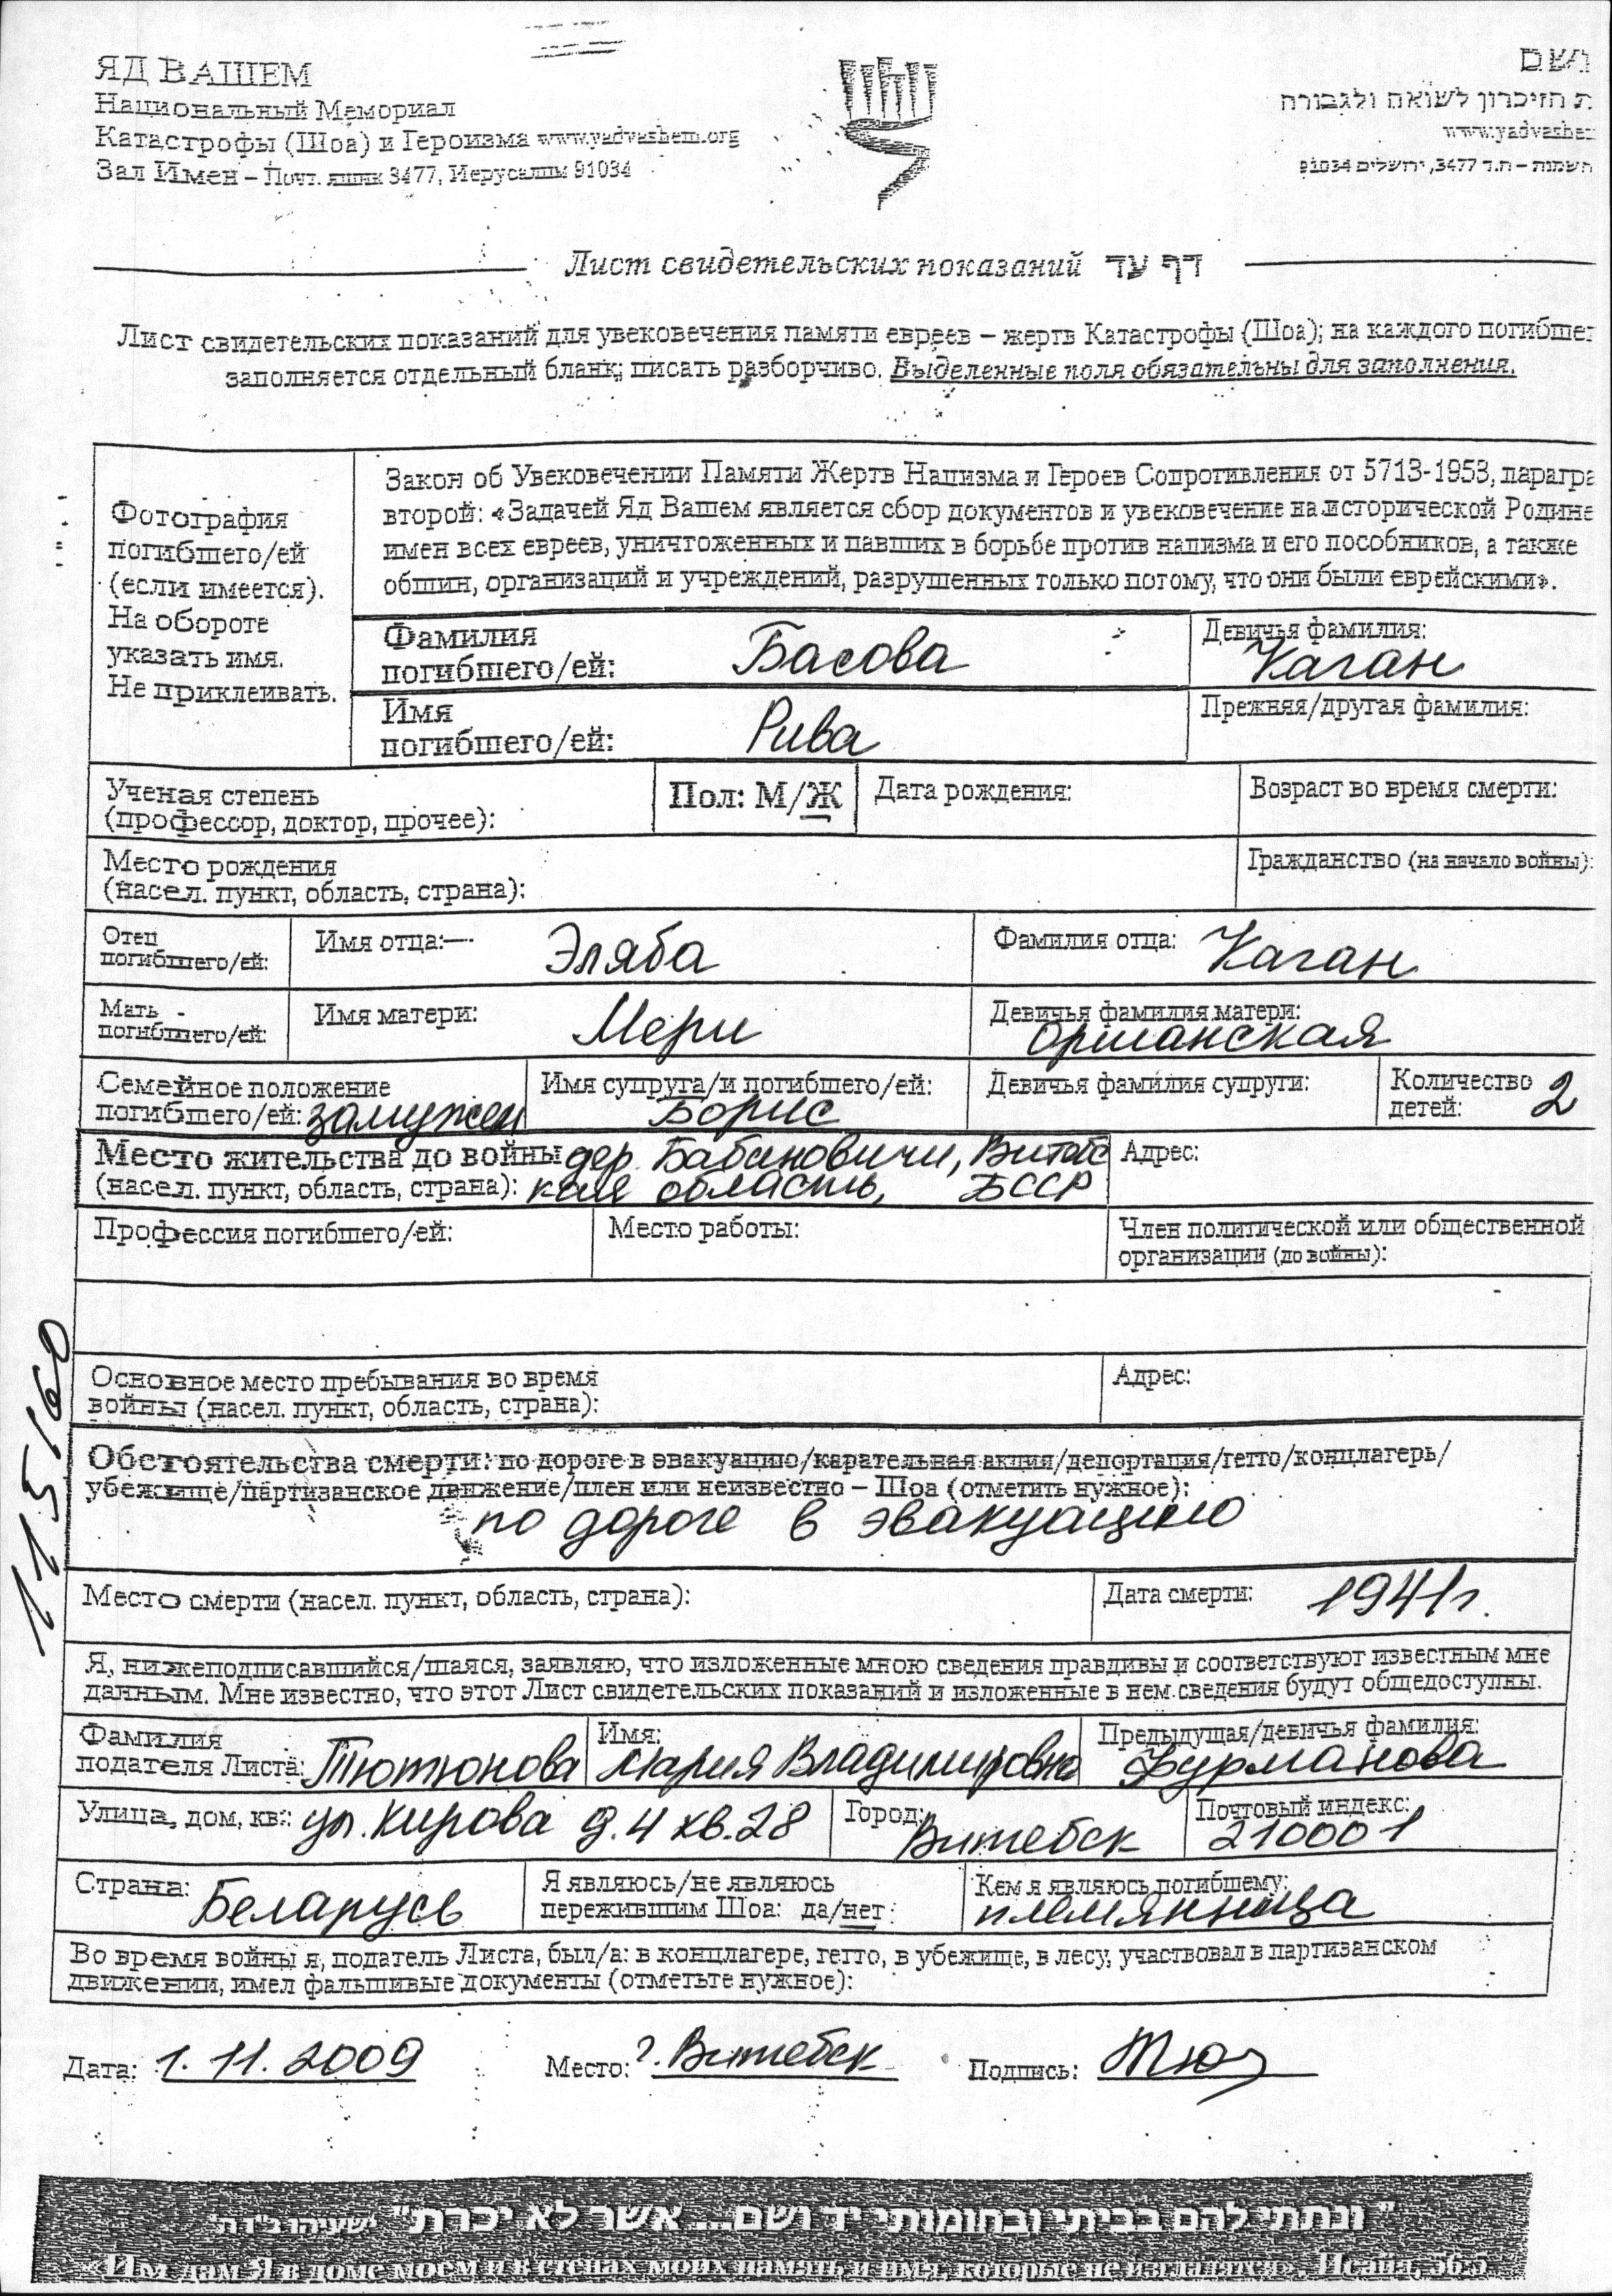 ЯД ВАШЕМ
Национальный Мемориал
Катастрофы (Шоа) и Героизма www.yadvashem.org
Зал Имен – Почт. ящик 3477, Иерусалим 91034
ושם
ת הזיכרון לשואה ולגבורה
www.yadvashe
השמות – ת.ד 3477, ירושלים 91034
Лист свидетельских показаний דף עד
Лист свидетельских показаний для увековечения памяти евреев – жертв Катастрофы (Шоа); на каждого погибшег
заполняется отдельный бланк; писать разборчиво. Выделенные поля обязательны для заполнения.
Фотография
погибшего/ей
(если имеется).
На обороте
указать имя.
Не приклеивать.
Закон об Увековечении Памяти Жертв Нацизма и Героев Сопротивления от 5713-1953, парагра
второй: «Задачей Яд Вашем является сбор документов и увековечение на исторической Родине
имен всех евреев, уничтоженных и павших в борьбе против нацизма и его пособников, а также
общин, организаций и учреждений, разрушенных только потому, что они были еврейскими».
Фамилия
погибшего/ей: Басова
Девичья фамилия:
Каган
Имя
погибшего/ей: Рива
Прежняя/другая фамилия:
Ученая степень
(профессор, доктор, прочее):
Пол: М/Ж
Дата рождения:
Возраст во время смерти:
Место рождения
(насел. пункт, область, страна):
Гражданство (на начало войны):
Отец
погибшего/ей:
Имя отца: Эляба
Фамилия отца: Каган
Мать
погибшего/ей:
Имя матери: Мери
Девичья фамилия матери:
Оршанская
Семейное положение
погибшего/ей: замужем
Имя супруга/и погибшего/ей:
Борис
Девичья фамилия супруги:
Количество
детей: 2
Место жительства до войны дер. Бабиновичи, Витебс
(насел. пункт, область, страна): кая область, БССР
Адрес:
Профессия погибшего/ей:
Место работы:
Член политической или общественной
организации (до войны):
Основное место пребывания во время
войны (насел. пункт, область, страна):
Адрес:
Обстоятельства смерти: по дороге в эвакуацию/карательная акция/депортация/гетто/концлагерь/
убежище/партизанское движение/плен или неизвестно – Шоа (отметить нужное):
по дороге в эвакуацию
Место смерти (насел. пункт, область, страна):
Дата смерти: 1941г.
Я, нижеподписавшийся/шаяся, заявляю, что изложенные мною сведения правдивы и соответствуют известным мне
данным. Мне известно, что этот Лист свидетельских показаний и изложенные в нем сведения будут общедоступны.
Фамилия
подателя Листа: Тютюнова
Имя:
Мария Владимировна
Предыдущая/девичья фамилия:
Фурманова
Улица, дом, кв.: ул. Кирова д.4 кв.28
Город:
Витебск
Почтовый индекс:
210001
Страна: Беларусь
Я являюсь/не являюсь
пережившим Шоа: да/нет
Кем я являюсь погибшему:
племянница
Во время войны я, податель Листа, был/а: в концлагере, гетто, в убежище, в лесу, участвовал в партизанском
движении, имел фальшивые документы (отметьте нужное):
Дата: 1.11.2009
Место: г. Витебск
Подпись: Тю
115160
"ונתתי להם בביתי ובחומותי יד ושם... אשר לא יכרת" ישעיהו נ"ו ה'
«Им дам Я в доме моем и в стенах моих память и имя, которые не изгладятся». Исайя, 56:5